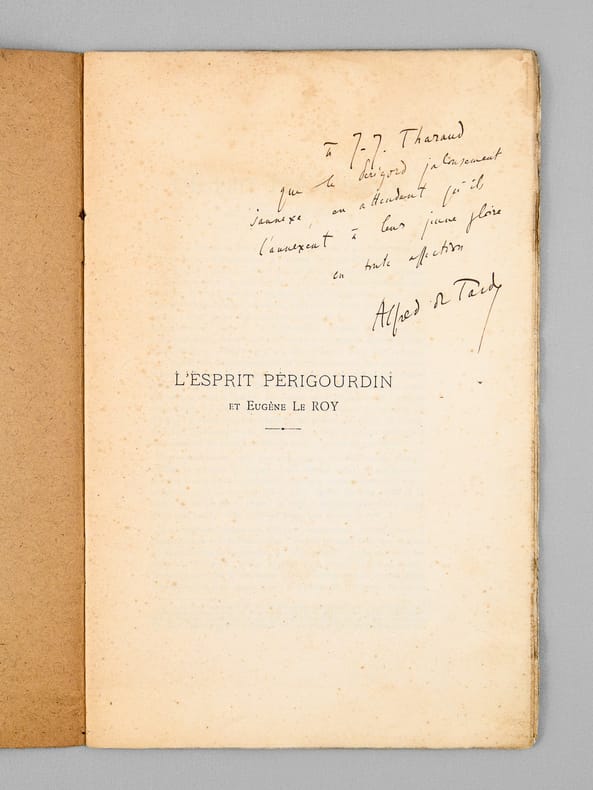 à J-J. Tharaud
que le Périgord jalousement
s'annexe, en attendant qu'ils
l'annexent à leur jeune gloire
en toute affection
Alfred de Tarde
L'ESPRIT PÉRIGOURDIN
ET EUGÈNE LE ROY